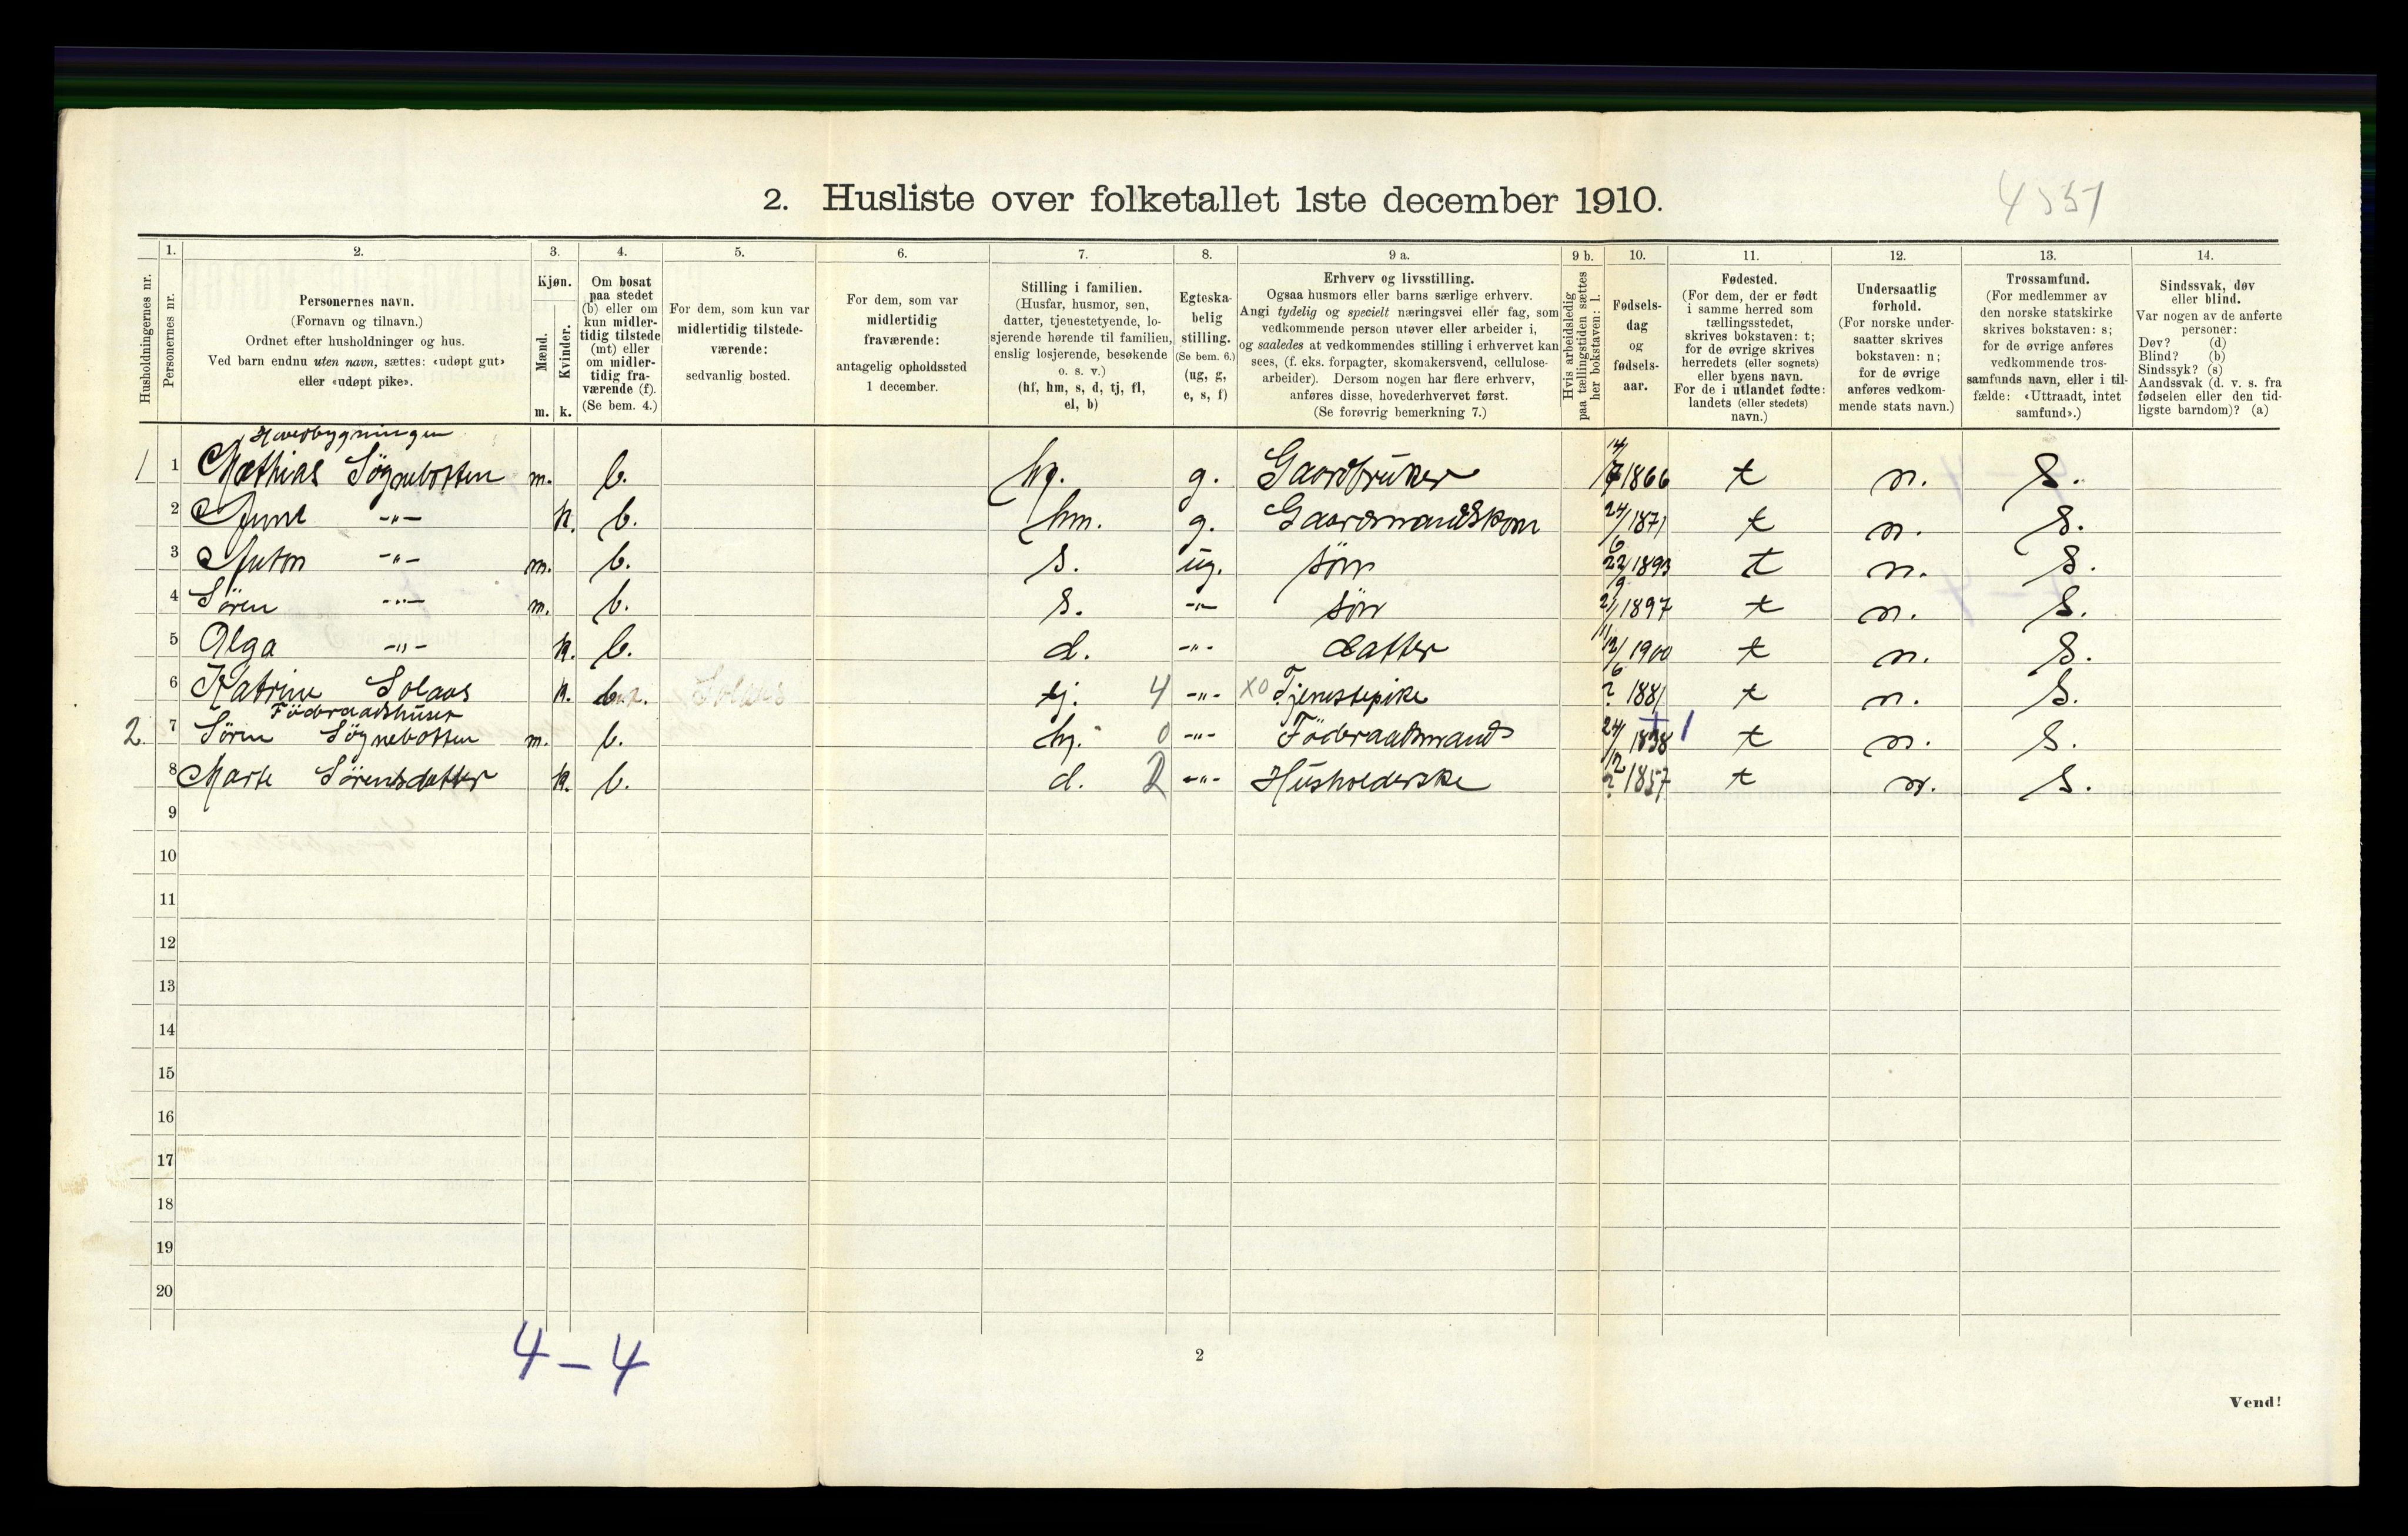 2. Husliste over folketallet 1ste december 1910.
4357
Husholdningernes nr.
1.
Personernes nr.
2.
Personernes navn.
(Fornavn og tilnavn.)
Ordnet efter husholdninger og hus.
Ved barn endnu uten navn, sættes: «udøpt gut»
eller «udøpt pike».
3.
Kjøn.
Mænd.
Kvinder.
m. k.
4.
Om bosat
paa stedet
(b) eller om
kun midler-
tidig tilstede
(mt) eller
om midler-
tidig fra-
værende (f).
(Se bem. 4.)
5.
For dem, som kun var
midlertidig tilstede-
værende:
sedvanlig bosted.
6.
For dem, som var
midlertidig
fraværende:
antagelig opholdssted
1 december.
7.
Stilling i familien.
(Husfar, husmor, søn,
datter, tjenestetyende, lo-
sjerende hørende til familien,
enslig losjerende, besøkende
o. s. v.)
(hf, hm, s, d, tj, fl,
el, b)
8.
Egteska-
belig
stilling.
(Se bem. 6.)
(ug, g,
e, s, f)
9 a.
Erhverv og livsstilling.
Ogsaa husmors eller barns særlige erhverv.
Angi tydelig og specielt næringsvei eller fag, som
vedkommende person utøver eller arbeider i,
og saaledes at vedkommendes stilling i erhvervet kan
sees, (f. eks. forpagter, skomakersvend, cellulose-
arbeider). Dersom nogen har flere erhverv,
anføres disse, hovederhvervet først.
(Se forøvrig bemerkning 7.)
9 b.
Hvis arbeidsledig
paa tællingstiden sættes
her bokstaven: l.
10.
Fødsels-
dag
og
fødsels-
aar.
11.
Fødested.
(For dem, der er født
i samme herred som
tællingsstedet,
skrives bokstaven: t;
for de øvrige skrives
herredets (eller sognets)
eller byens navn.
For de i utlandet fødte:
landets (eller stedets)
navn.)
12.
Undersaatlig
forhold.
(For norske under-
saatter skrives
bokstaven: n;
for de øvrige
anføres vedkom-
mende stats navn.)
13.
Trossamfund.
(For medlemmer av
den norske statskirke
skrives bokstaven: s;
for de øvrige anføres
vedkommende tros-
samfunds navn, eller i til-
fælde: «Uttraadt, intet
samfund».)
14.
Sindssvak, døv
eller blind.
Var nogen av de anførte
personer:
Døv? (d)
Blind? (b)
Sindssyk? (s)
Aandssvak (d. v. s. fra
fødselen eller den tid-
ligste barndom)? (a)
Hovedbygningen
1 1 Mathias Søgnebotten m. b. g. Gaardbruker 14/7 1866 t n. S.
2 -"- k. b. hm. g. Gaardmandskone 24/6 1871 t n. S.
3 Anton -"- m. b. s. ug. søn 22/9 1893 t n. S.
4 Sören -"- m. b. s. -"- søn 21/11 1897 t n. S.
5 Olga -"- k. b. d. -"- datter 12/6 1900 t n. S.
6 Katrine Solaas k. b. Solaas tj. 4 -"- XO Tjenestepike ? 1881 t n. S.
Föderaadshuset
2. 7 Sören Søgnebotten m. b. 0 -"- Föderaadsmand 24/12 1838 t n. S.
8 Marte Sörensdatter k. b. d. 2 -"- Husholderske ? 1857 t n. S.
9
10
11
12
13
14
15
16
17
18
19
20
4 – 4
2
Vend!